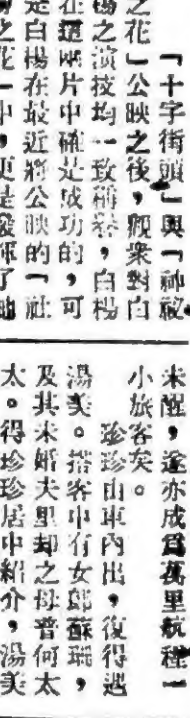 「十字街頭」與「神秘
之花」公映之後，觀衆對白
楊之演技均一致稱譽，白楊
在這兩片中確是成功的，可
是白楊在最近將公映的「社
之花」中，更是發揮了
未醒，遂亦成爲萬里航程一
小旅客矣。
珍珍由車內出，復得遇
湯美。搭客中有女郎蘇珊，
及其未婚夫里却之母普何太
太。得珍珍居中紹介，湯美